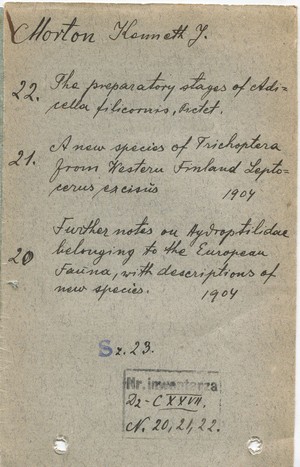 Morton Kenneth J.
22. The preparatory stages of Adi=
cella filicornis, Pictet.
21. A new species of Trichoptera
from Western Finland Lepto=
cerus excisus
1904
20 Further notes on Hydroptilidae
belonging to the European
Fauna, with descriptions of
new species. 1904
Sz. 23.
Nr. inwentarza
Dz-C XXVII.
N. 20, 21, 22.